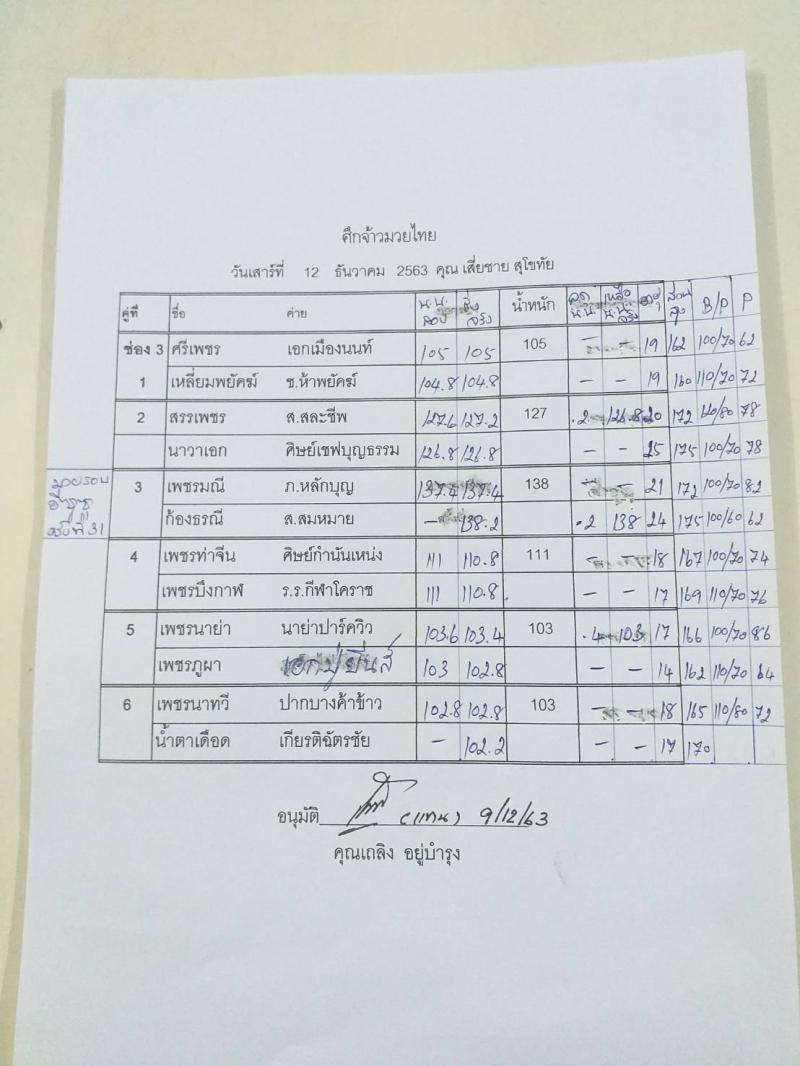 ศึกจ้าวมวยไทย
วันเสาร์ที่ 12 ธันวาคม 2563 คุณ เสี่ยชาย สุโขทัย
คู่ที่ ชื่อ ค่าย น.น. ลอง ชั่ง จริง น้ำหนัก ลด น.น. เหลือ น.น. จริง อายุ ส่วน สูง B/P P
ช่อง 3 ศรีเพชร เอกเมืองนนท์ 105 105 105 – – 19 162 100/70 62
1 เหลี่ยมพยัคฆ์ ช.ห้าพยัคฆ์ 104.8 104.8 – – 19 160 110/70 72
2 สรรเพชร ส.สละชีพ 127.6 127.2 127 .2 126.8 20 172 120/80 78
นาวาเอก ศิษย์เชฟบุญธรรม 126.8 126.8 – – 25 175 100/70 78
มวยรอบ
ครั้งที่ 31
3 เพชรมณี ภ.หลักบุญ 137.4 137.4 138 – – 21 172 100/70 82
ก้องธรณี ส.สมหมาย – 138.2 .2 138 24 175 100/60 62
4 เพชรท่าจีน ศิษย์กำนันเหน่ง 111 110.8 111 – – 18 167 100/70 74
เพชรบึงกาฬ ร.ร.กีฬาโคราช 111 110.8 – – 17 169 110/70 76
5 เพชรนาย่า นาย่าปาร์ควิว 103.6 103.4 103 .4 103 17 166 100/70 86
เพชรภูผา 103 102.8 – – 14 162 110/70 64
6 เพชรนาทวี ปากบางค้าข้าว 102.8 102.8 103 – – 18 165 110/80 72
น้ำตาเดือด เกียรติฉัตรชัย – 102.2 – – 17 170
อนุมัติ (แทน) 9/12/63
คุณเถลิง อยู่บำรุง